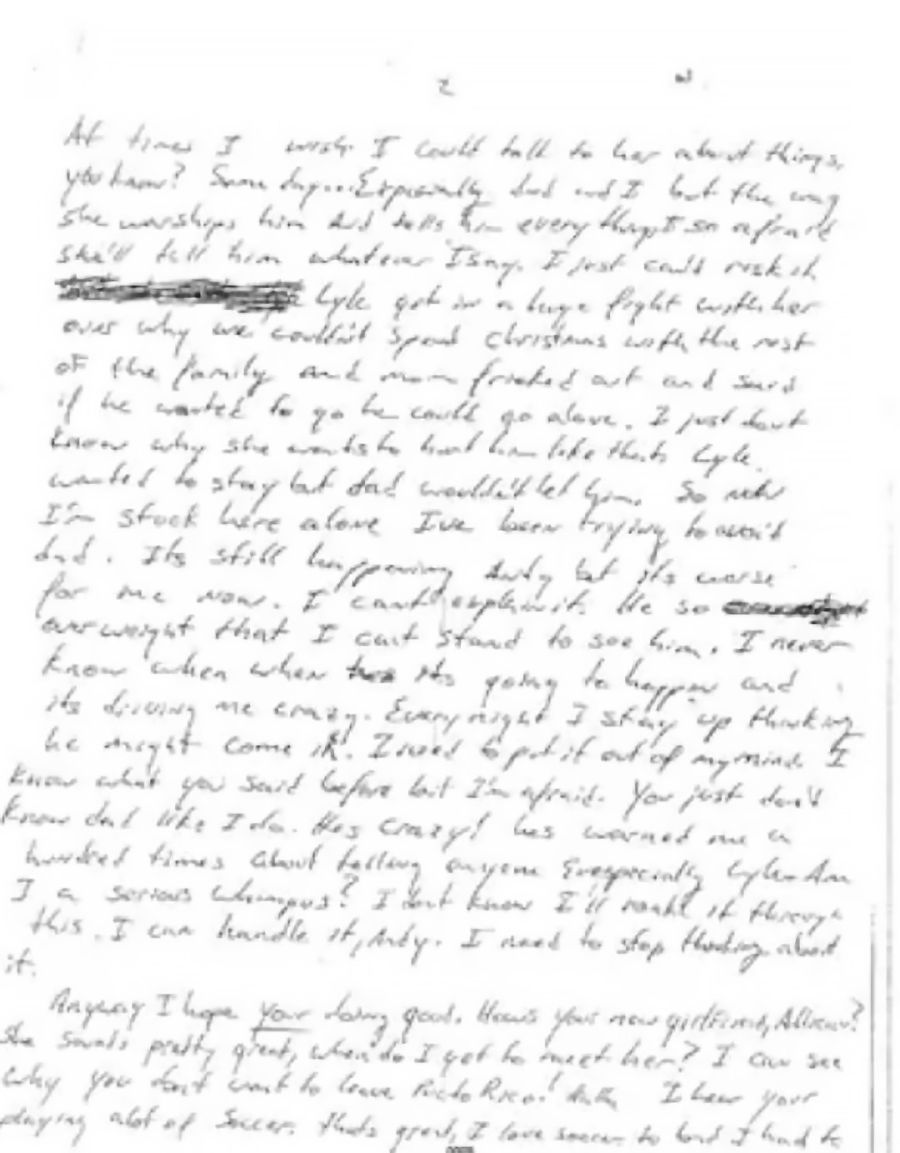 2
At times I wish I could talk to her about things,
you know? Some day... Especially dad and I but the way
she worships him and tells him everything I so afraid
she'll tell him whatever I say. I just can't risk it
Lyle got in a huge fight with her
over why we couldn't spend Christmas with the rest
of the family and mom freaked out and said
if he wanted to go he could go alone. I just don't
know why she wants to hurt him like that. Lyle
wanted to stay but dad wouldn't let him. So now
I'm stuck here alone I've been trying to avoid
dad. Its still happening Andy but its worse
for me now. I can't explain it. He so
overweight that I cant stand to see him. I never
know when when its going to happen and
its driving me crazy. Every night I stay up thinking
he might come in. I need to put it out of my mind. I
know what you said before but I'm afraid. You just don't
know dad like I do. Hes crazy! hes warned me a
hundred times about telling anyone especially Lyle. Am
I a serious whimpus? I dont know I'll make it through
this. I can handle it, Andy. I need to stop thinking about
it.
Anyway I hope your doing good. Hows your new girlfriend,
She sounds pretty great, when do I get to meet her? I can see
why you don't want to leave Puerto Rico! I hear your
playing alot of Soccer. thats great, I love soccer to but I had to